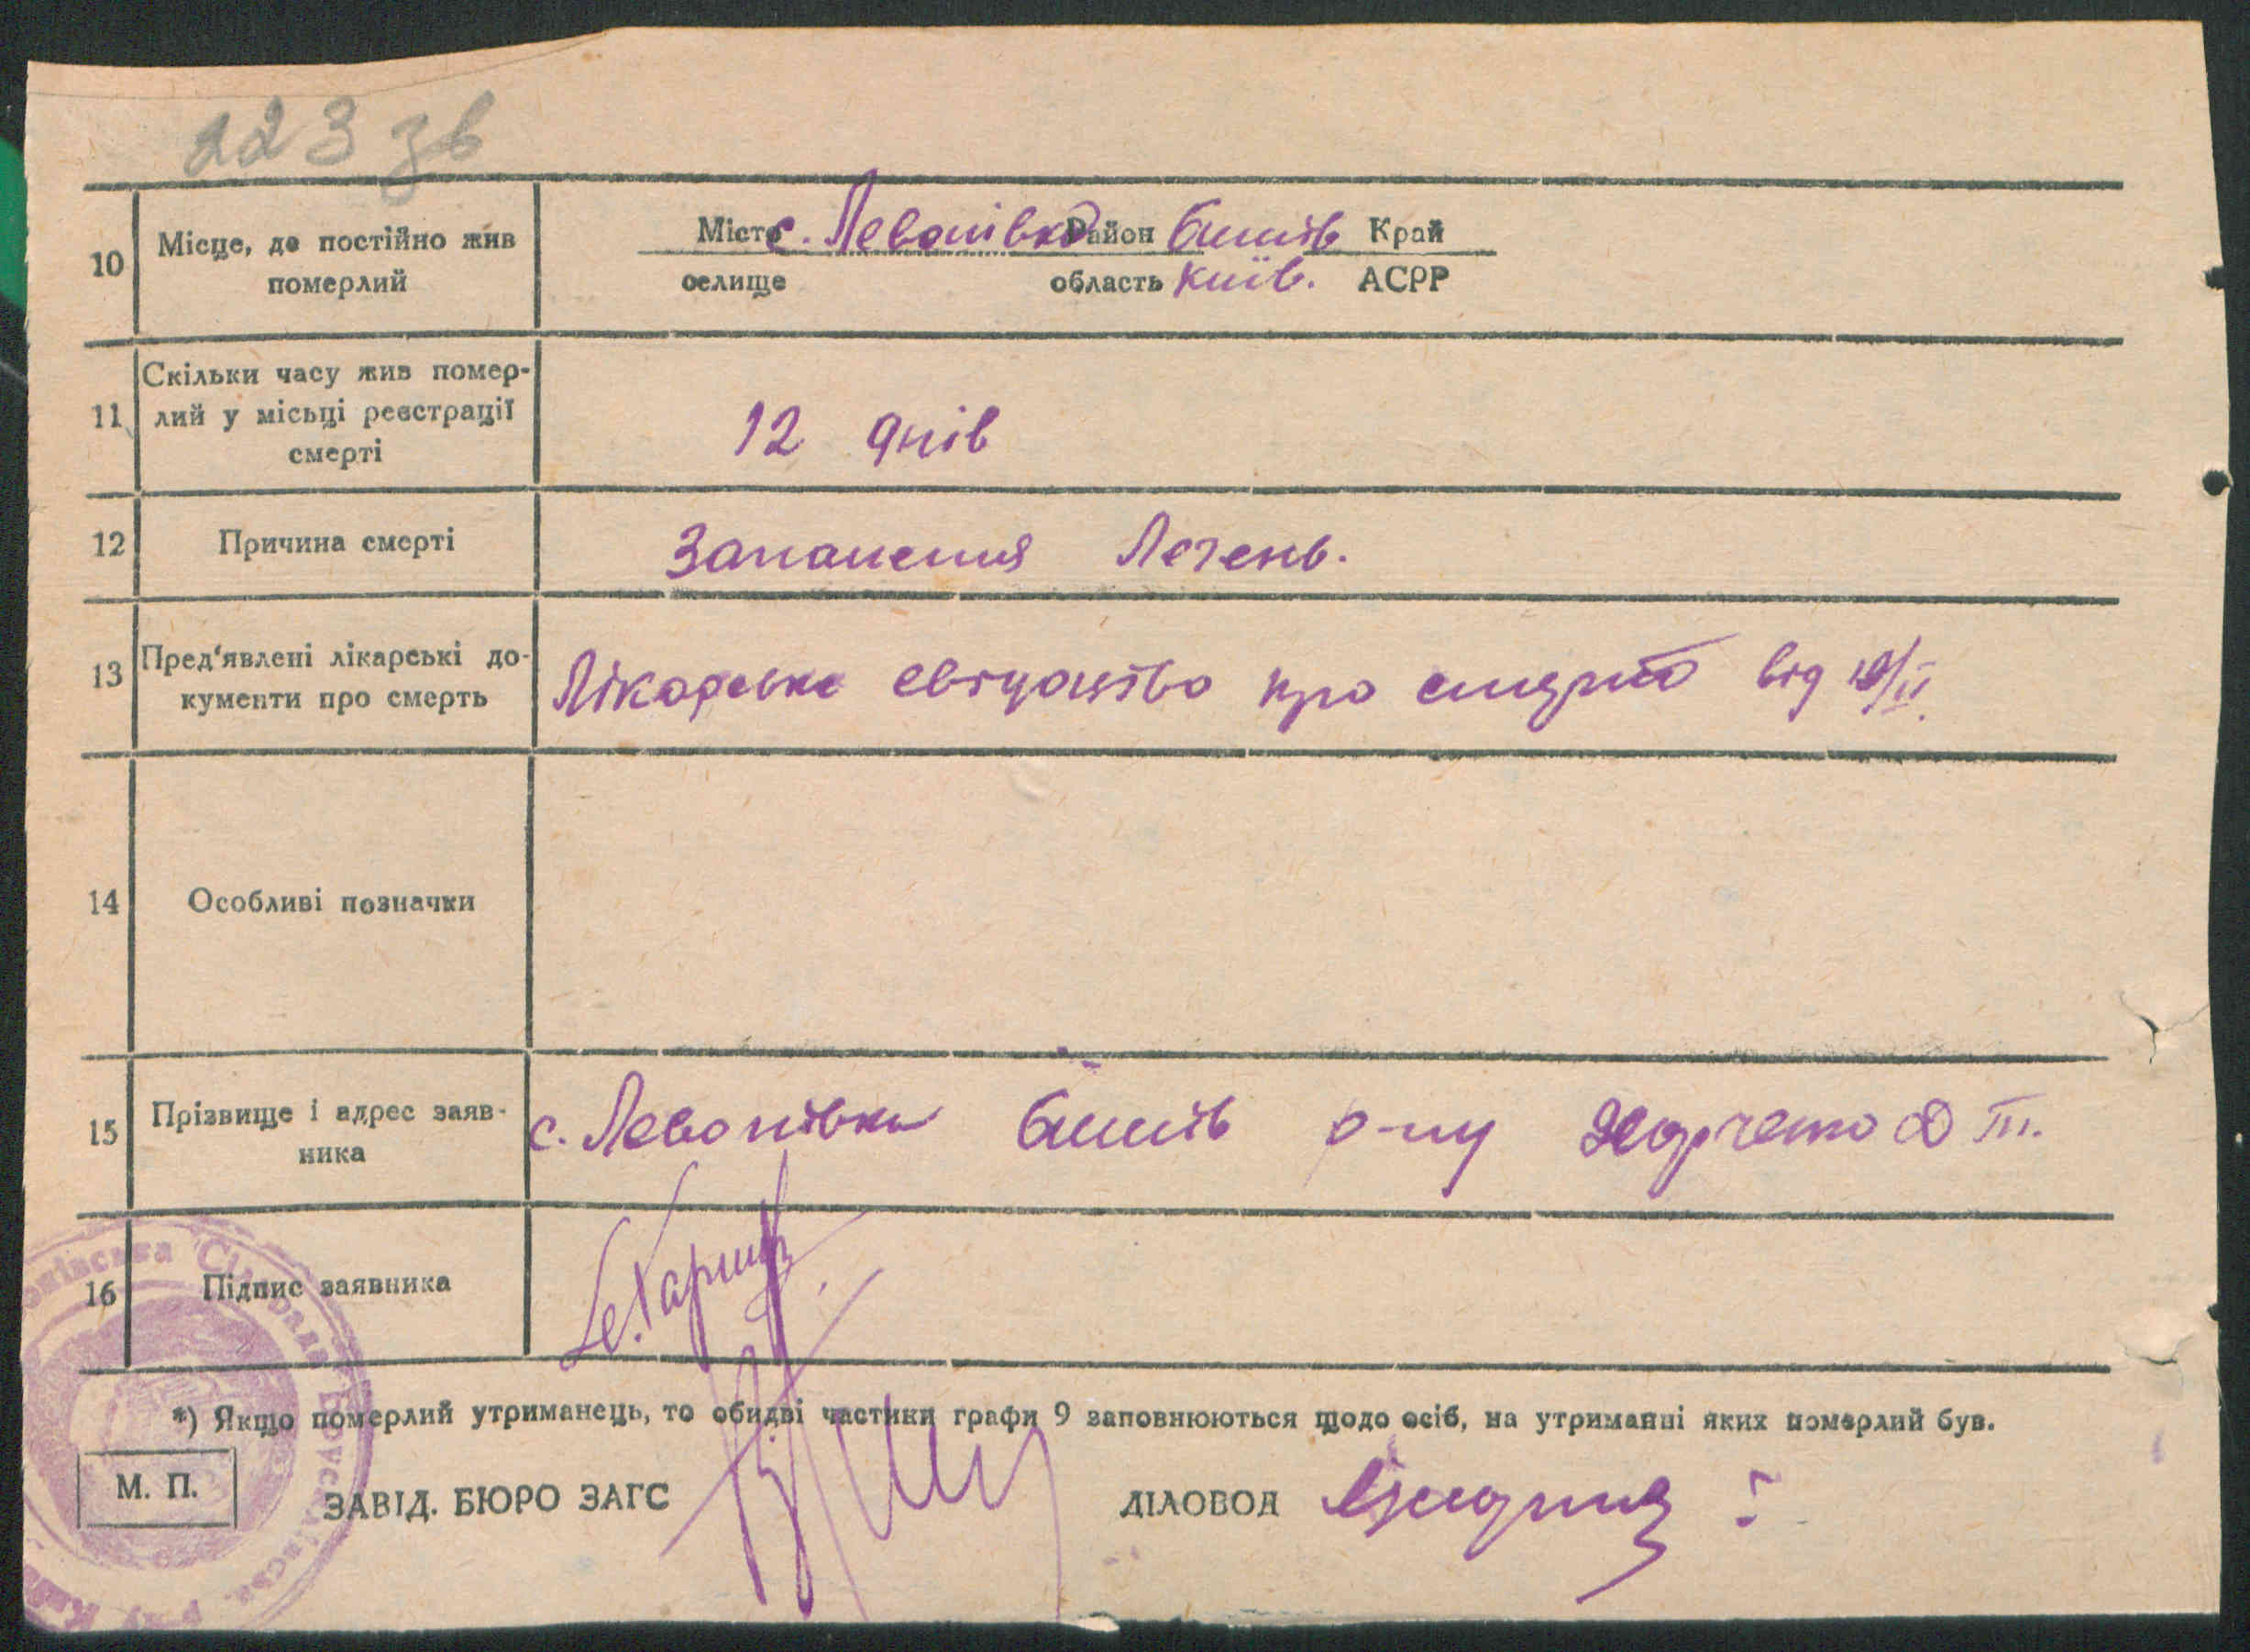 223 зв
10 Місце, де постійно жив померлий
Місто с. Левонівка Район Бишів Край
селище область Київ. АСРР
11 Скільки часу жив помер-
лий у місьці реєстрації
смерті
12 днів
12 Причина смерті Запаления Легень.
13 Пред'явлені лікарські до-
кументи про смерть
Лікарське свідоцтво про смерть від
14 Особливі позначки
15 Прізвище і адрес заяв-
ника
с. Левонівка Бишів р-ну
16 Підпис заявника
*) Якщо померлий утриманець, то обидві частики графи 9 заповнюються щодо осіб, на утриманні яких померлий був.
М. П.
ЗАВІД. БЮРО ЗАГС ДІЛОВОД